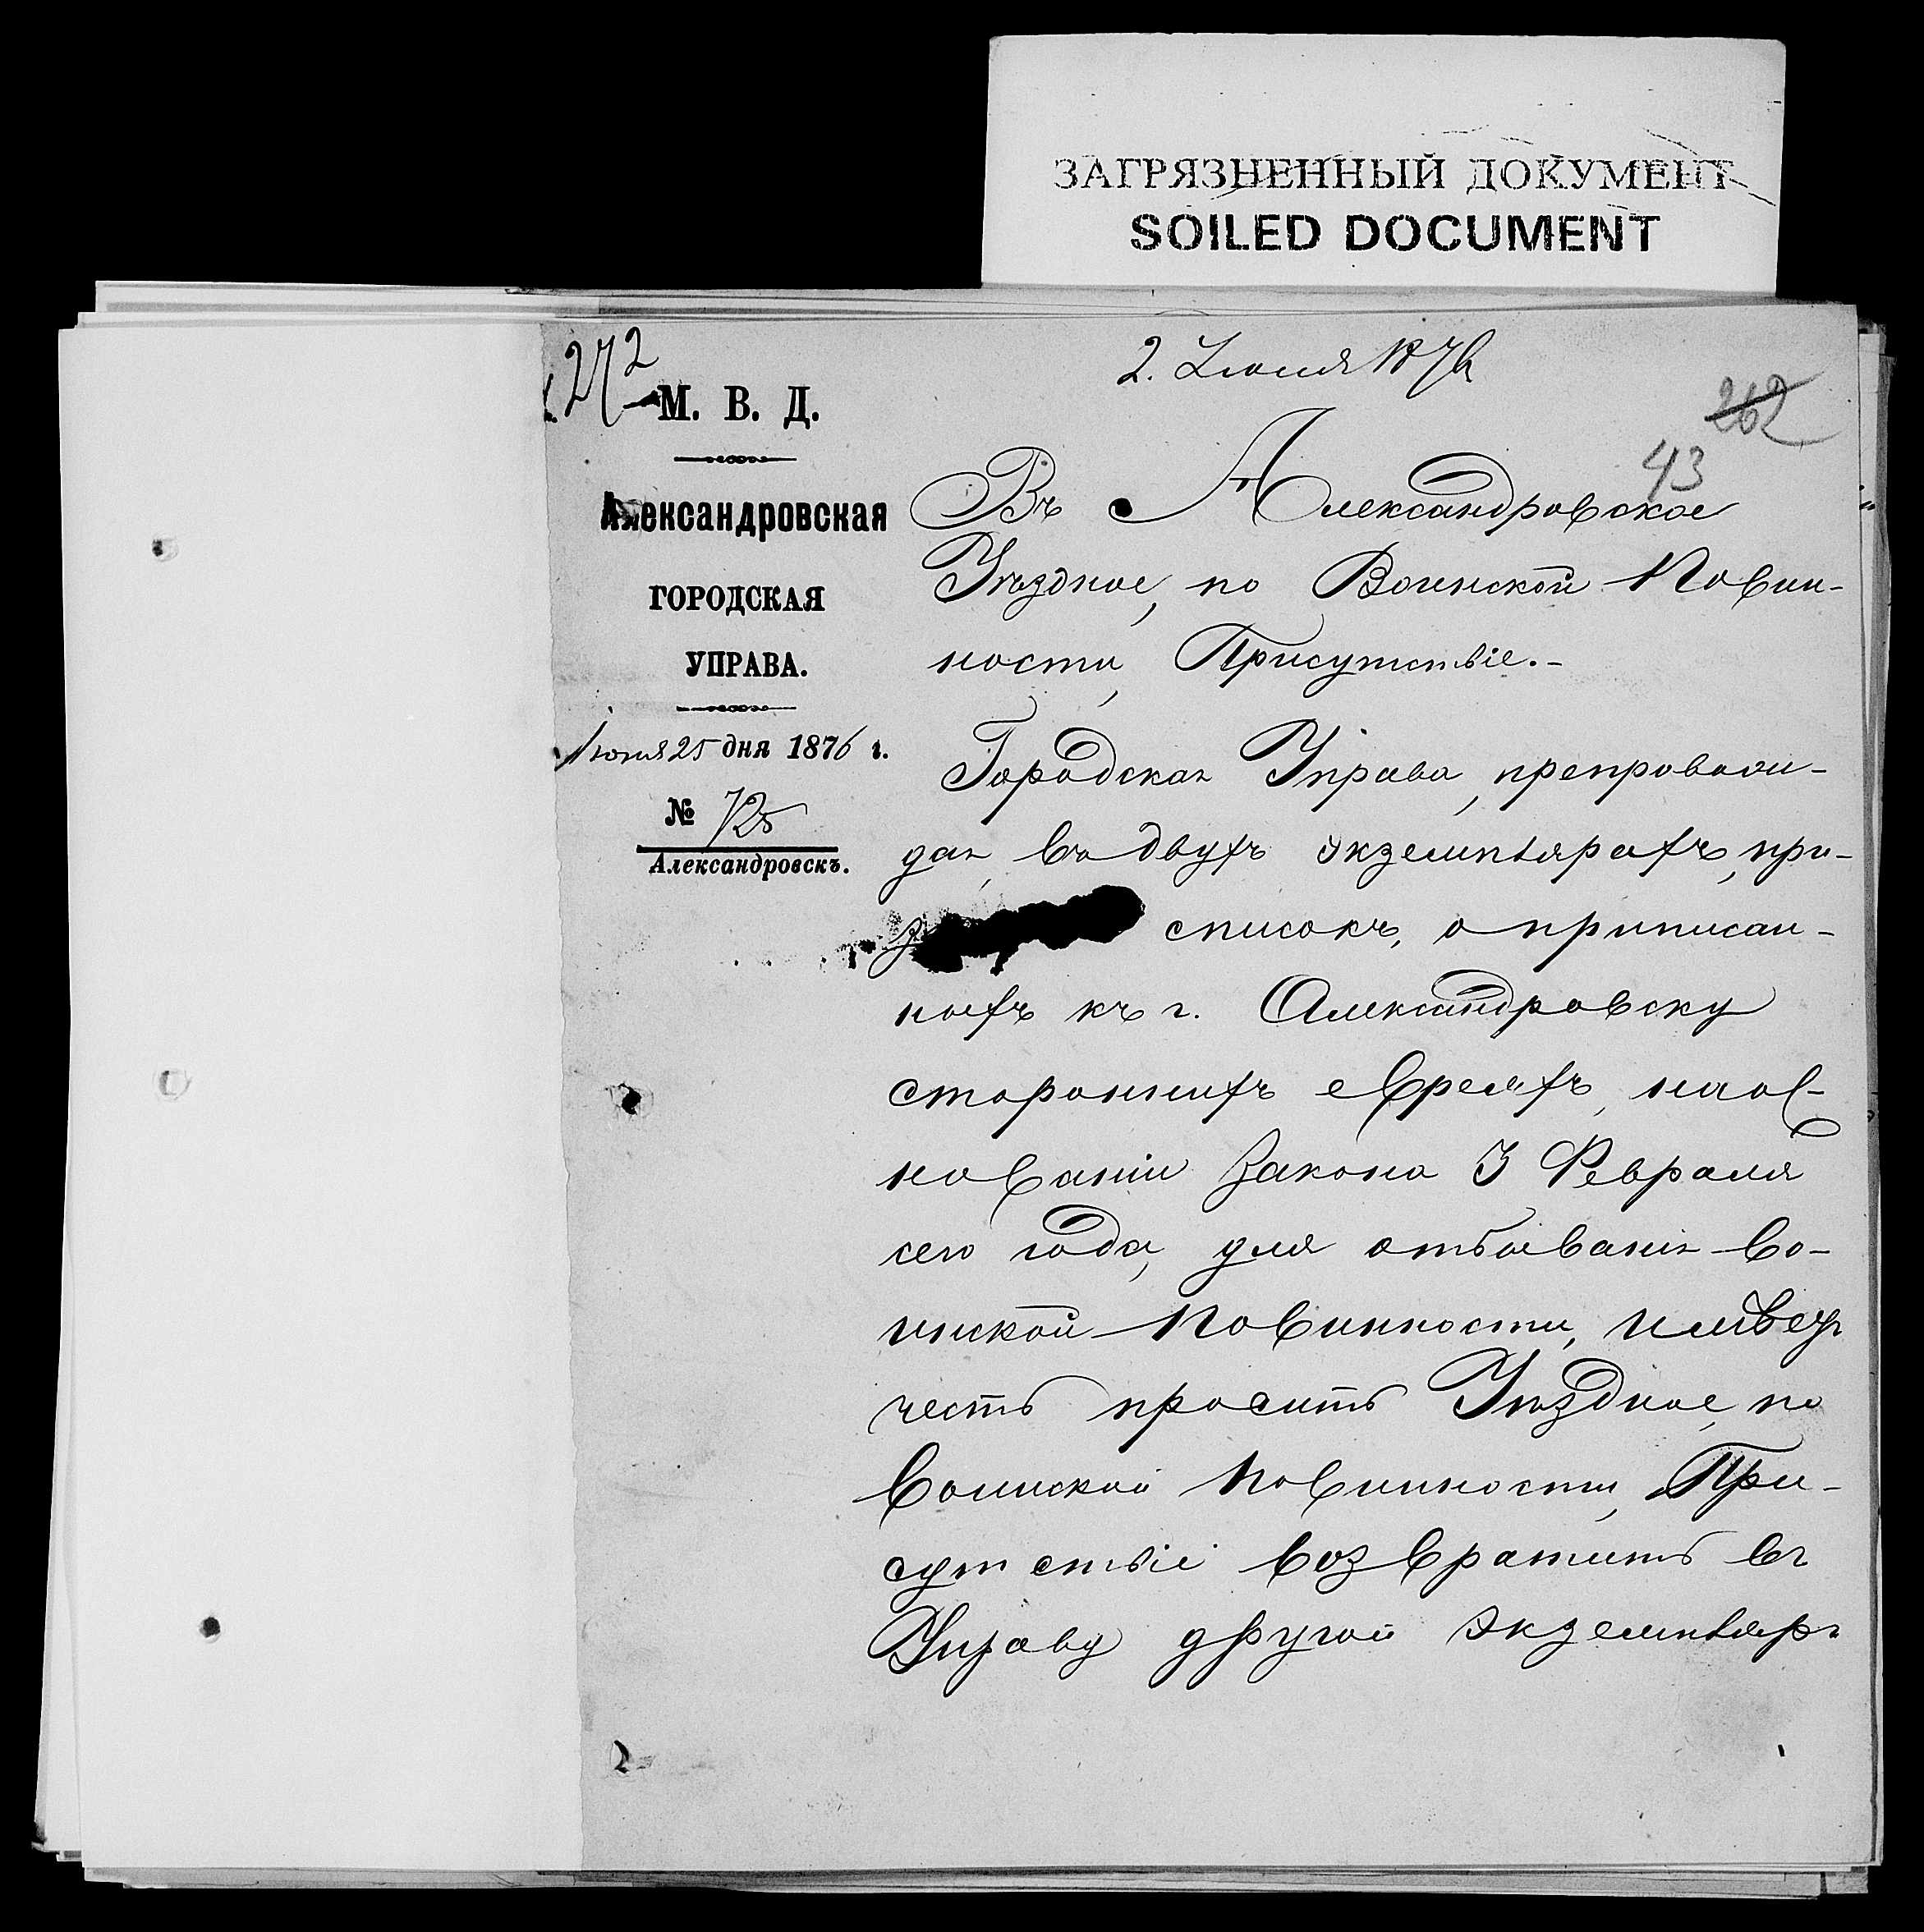 ЗАГРЯЗНЕННЫЙ ДОКУМЕНТ
SOILED DOCUMENT
272
М. В. Д.
Александровская
ГОРОДСКАЯ
УПРАВА.
Іюня 25 дня 1876 г.
№ 725
Александровскъ.
2. Іюля 1876
262
43
Въ Александровское
Уѣздное, по Воинской Повин-
ности, Присутствіе.-
Городская Управа, препровож-
дая, въ двухъ экземплярахъ, при-
списокъ, о приписан-
ныхъ къ г. Александровску
стороннихъ евреяхъ, на ос-
нованіи Закона 3 Февраля
сего года, для отбыванія во-
инской повинности, имѣетъ
честь просить Уѣздное, по
воинской повинности, При-
сутствіе возвратить въ
Управу другой экземпляръ